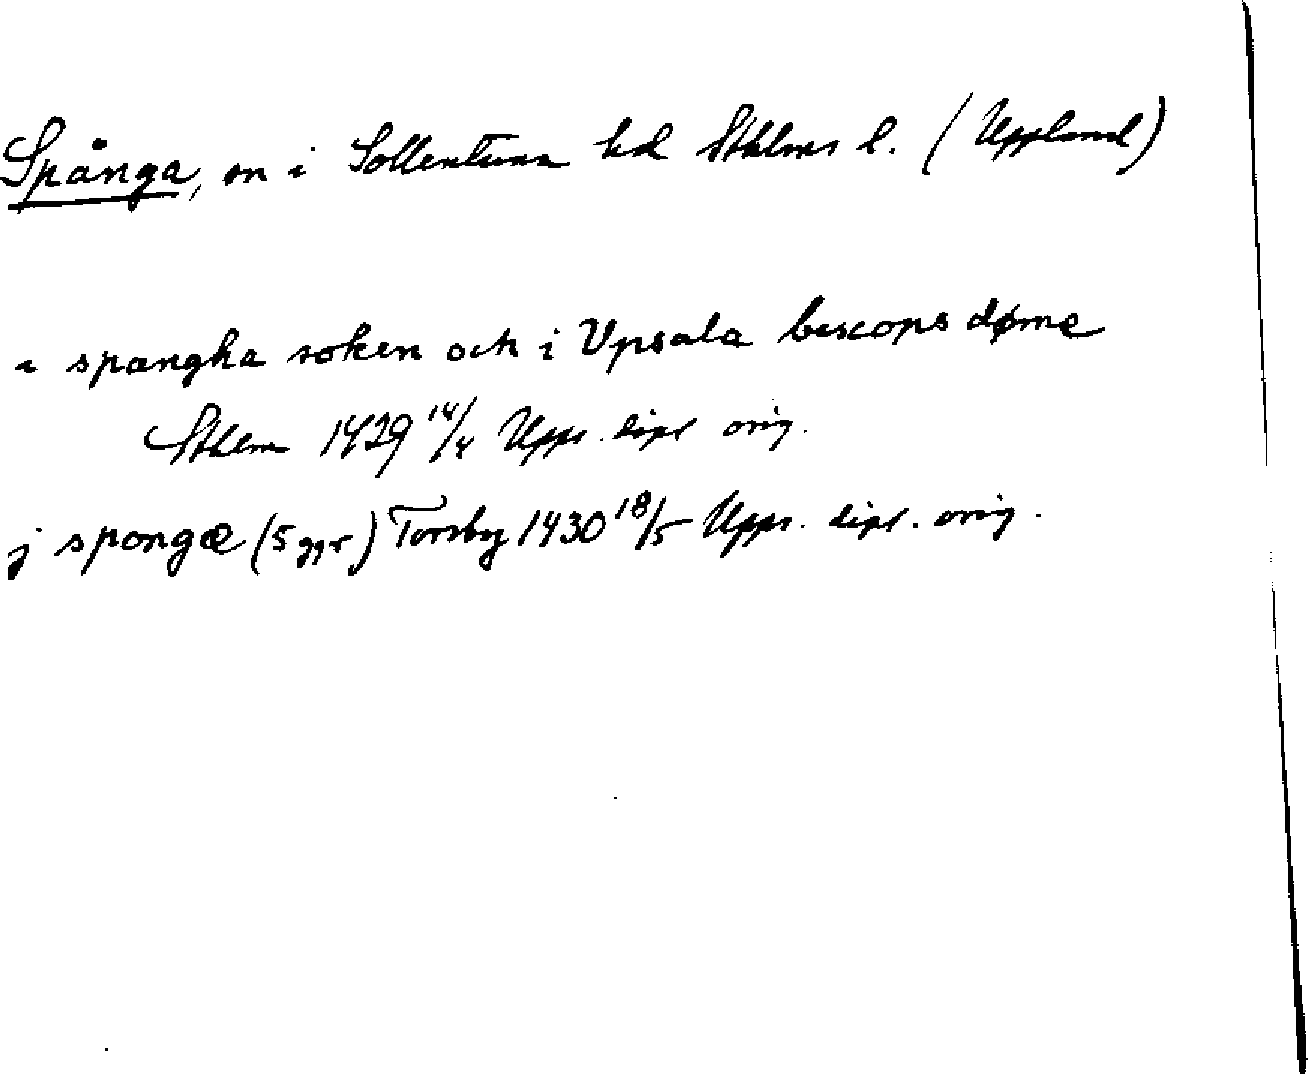 Spånga, sn i Sollentuna hd Sthlms l. (Uppland)
i spangha soken och i Vpsala biscops døme
Sthlm 1429 14/4 Upps. dipl orig.
j spongæ (5 ggr) Torsby 1430 18/5 Upps. dipl. orig.